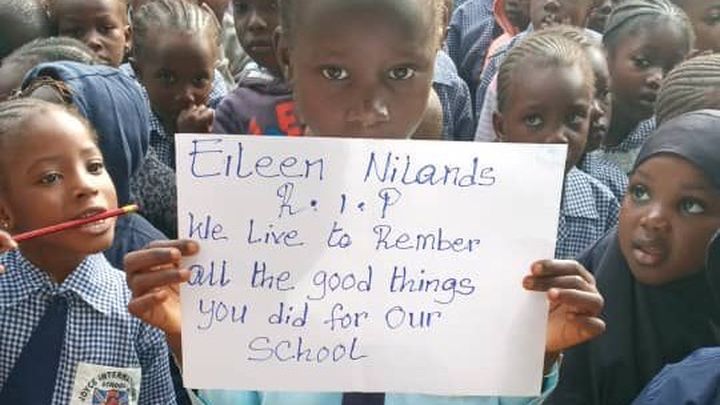 Eileen Nilands
R.I.P
We Live to Rember
all the good things
you did for our
School
JOYCE INTERN
SCHOOL